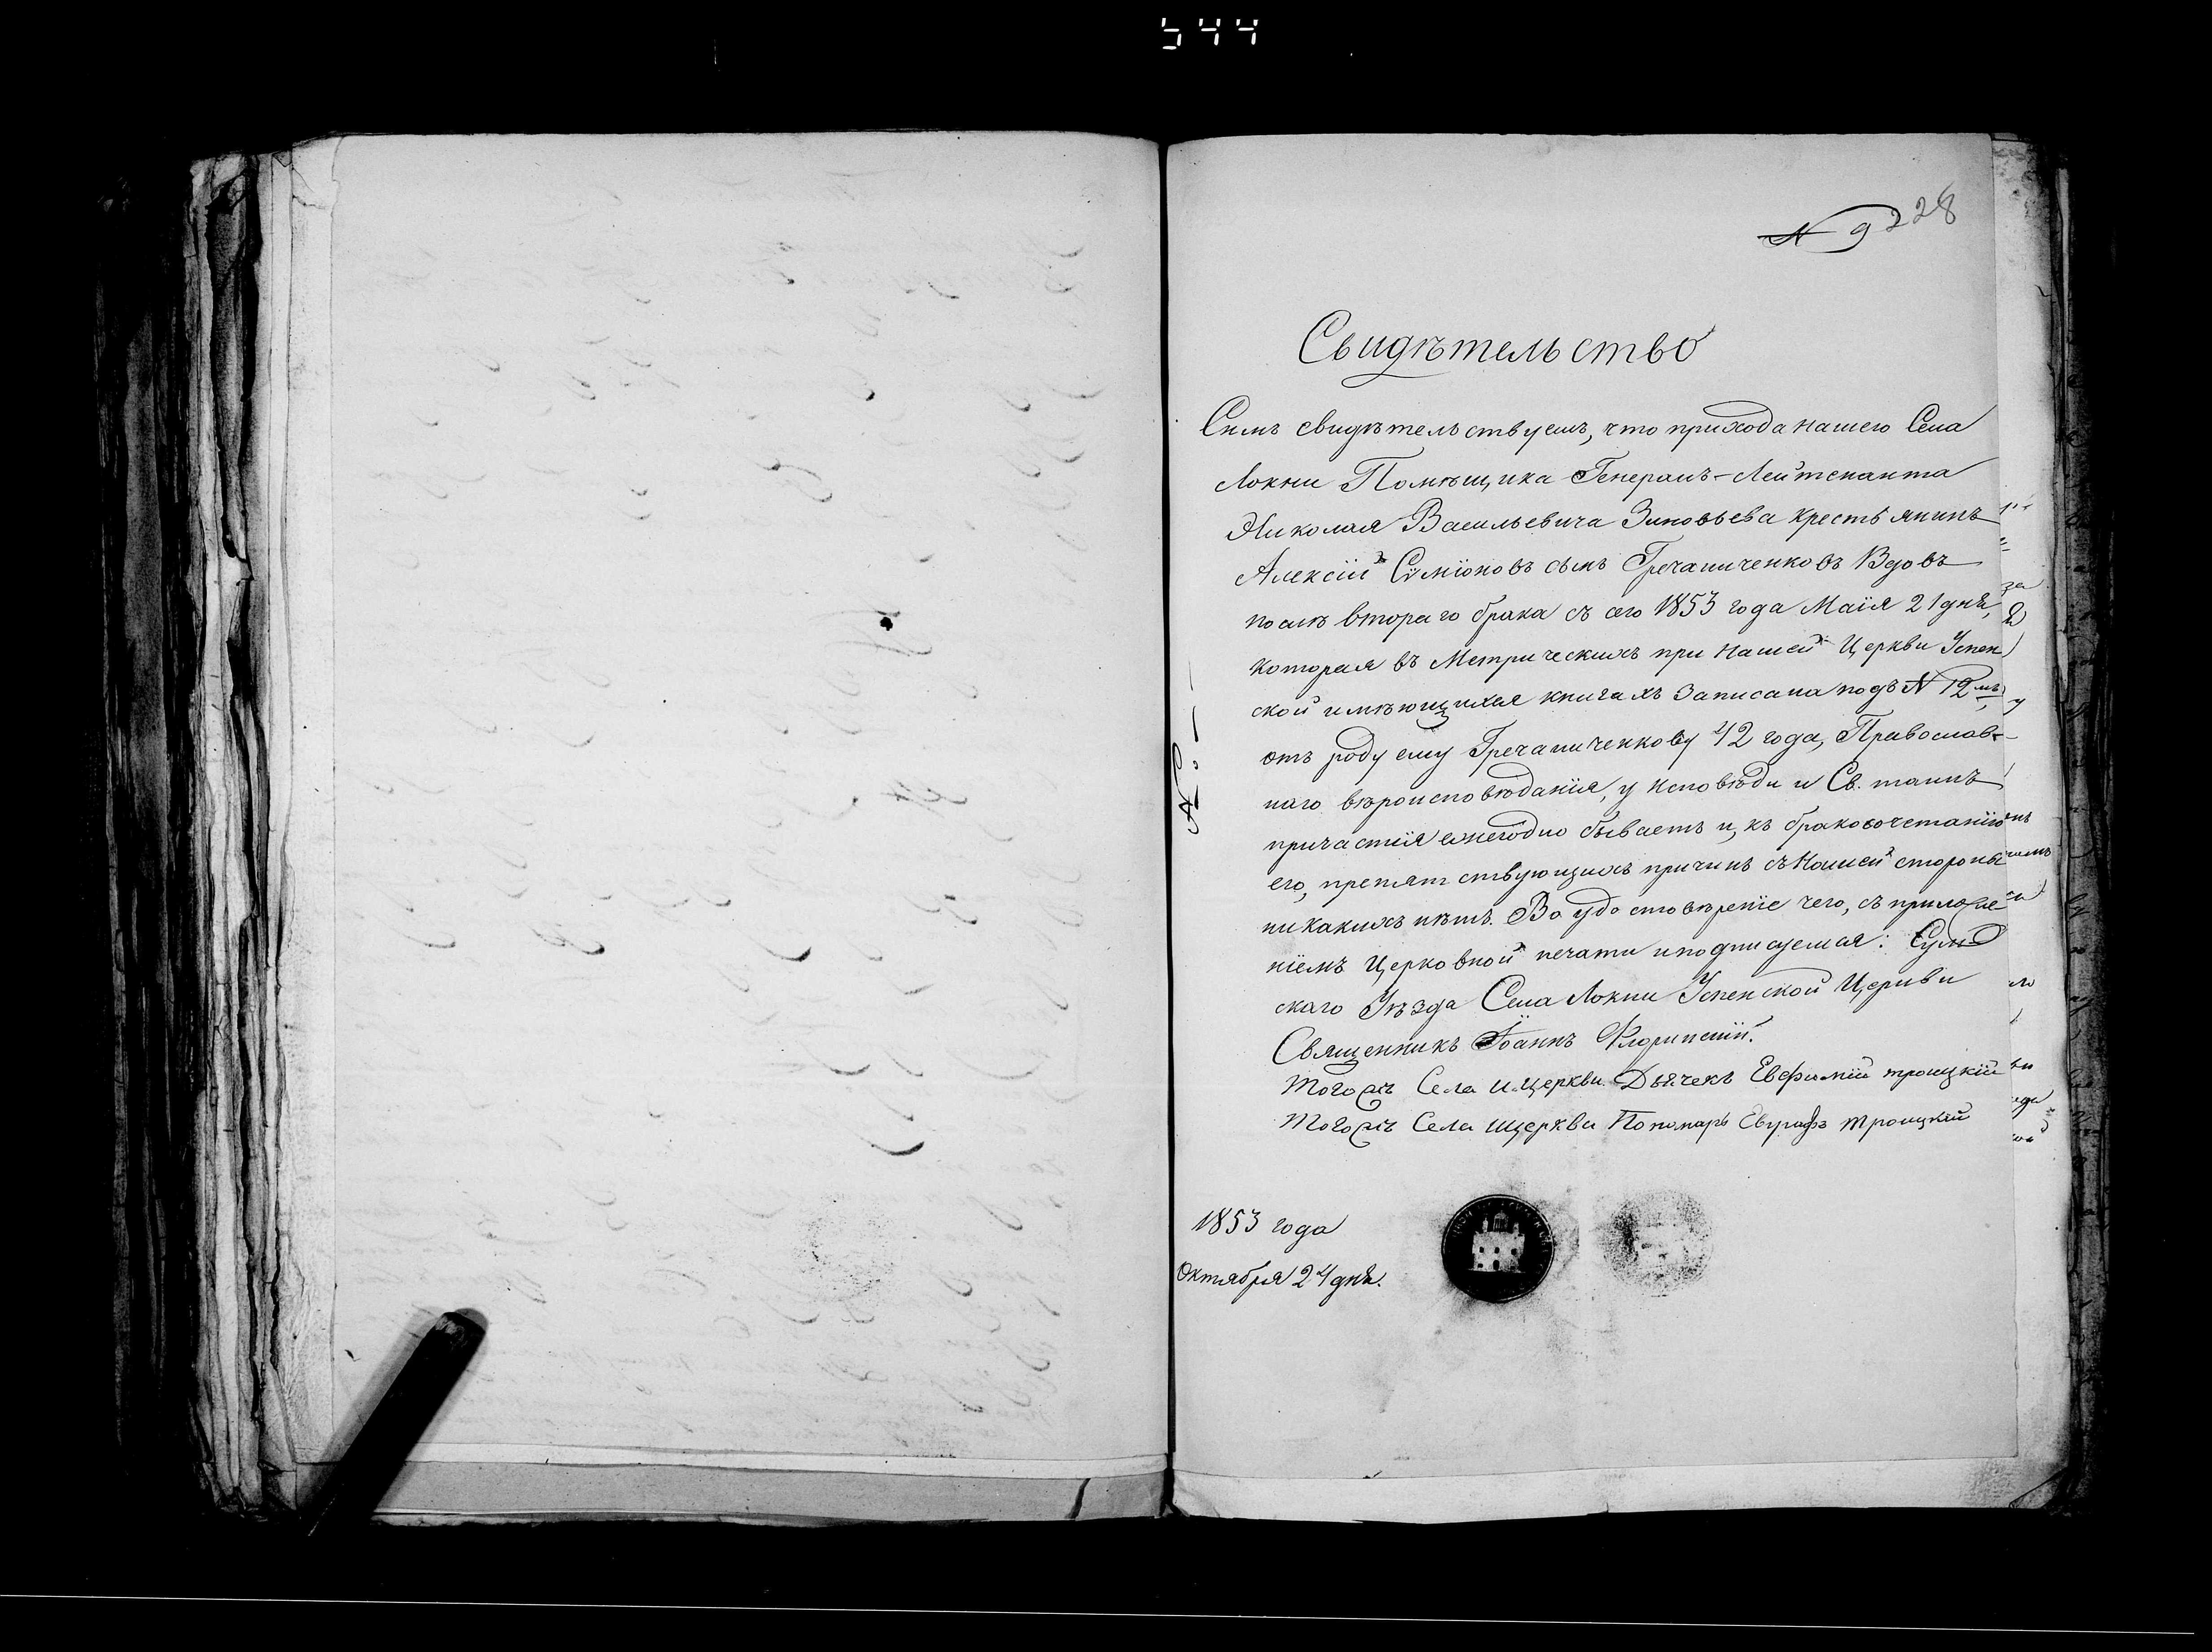 544
N 9 228
Свидѣтельство
Симъ свидѣтельствуемъ, что прихода нашего Села
Локни Помѣщика Генералъ-Лейтенанта
Николая Васильевича Зиновьева крестьянинъ
Алексій Сѵміоновъ сынъ Гречаниченковъ Вдовъ
послѣ втораго брака съ сего 1853 года Маія 21 дня,
которая въ Метрическихъ при нашей Церкви Успен
ской имѣющихся книгахъ записана подъ N 12мъ,
отъ роду ему Гречаниченкову 42 года, Православ-
наго вѣроисповѣданія, у исповѣди и Св. таинъ
причастія ежегодно бываетъ и, къ бракосочетанію
его, препятствующихъ причинъ съ Нашей стороны
никакихъ нѣтъ. Во удостовѣреніе чего, съ приложе-
ніемъ Церковной печати и подписуемся: Сумс
скаго Уѣзда Села Локни Успенской Церкви
Священникъ Іоаннъ Флоринскій.
Тогожъ Села и церкви Дьячекъ Евфимій троицкій
Тогожъ Села и церкви Пономарь Евграфъ троицкій
1853 года
Октября 24 дня.